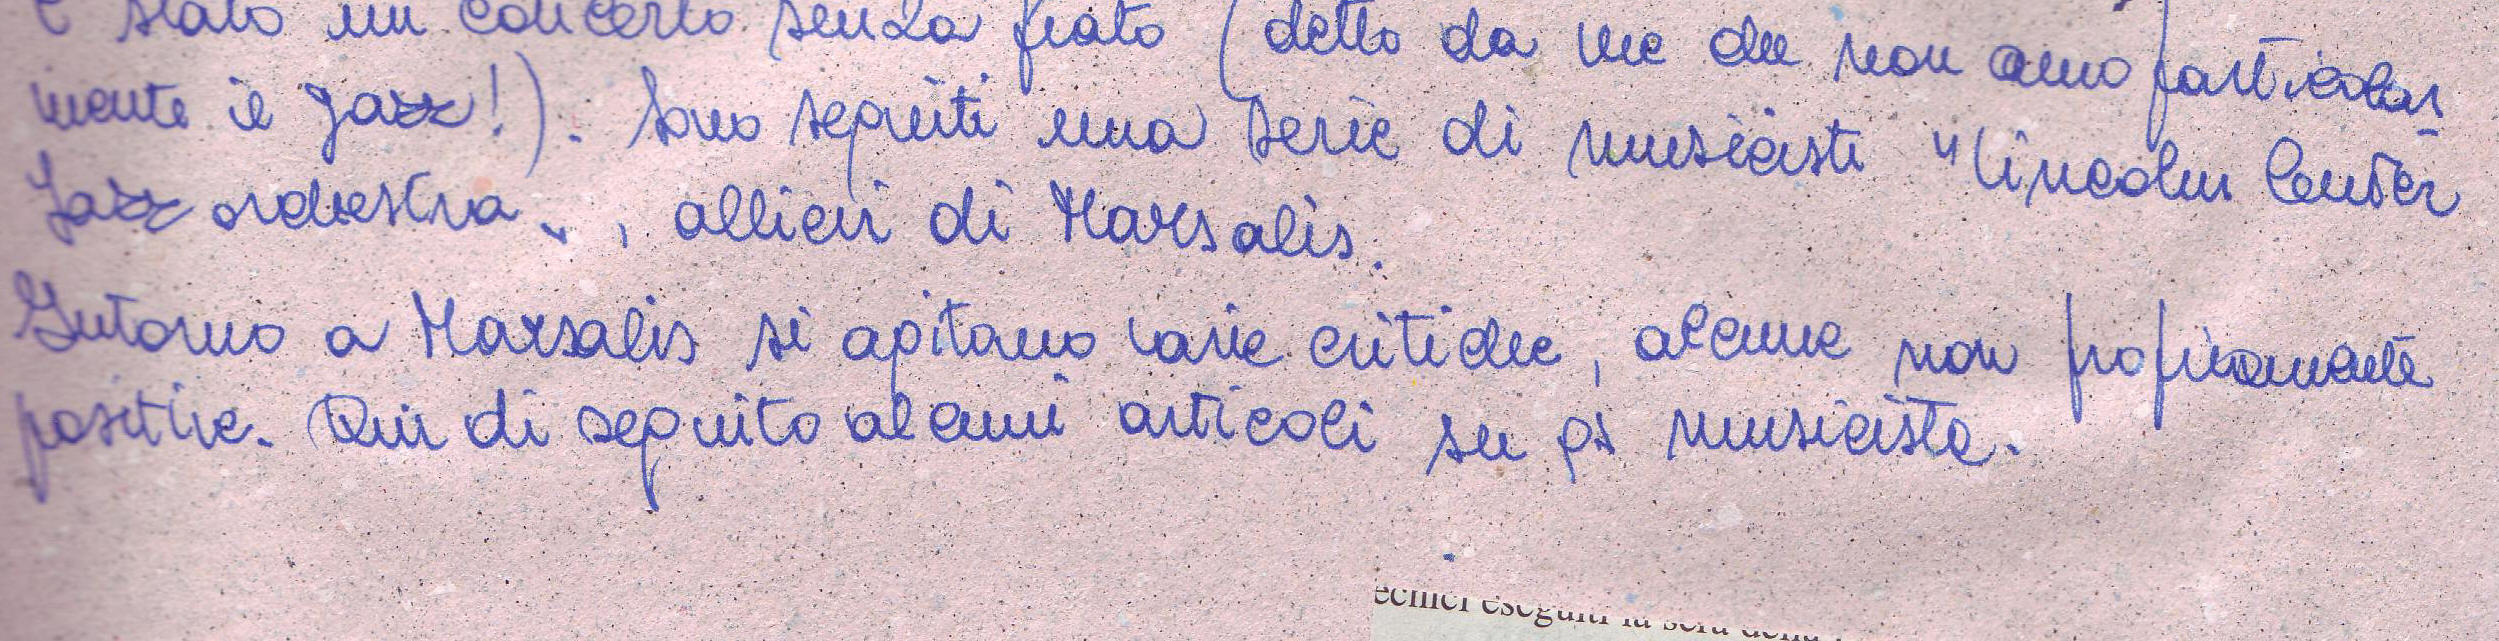 è stato un concerto senza fiato (detto da me che non amo particolar
mente il jazz!). Sono seguiti una serie di musicisti "Lincoln Center
Jazz orchestra", allievi di Marsalis.
Intorno a Marsalis si agitano varie critiche, alcune non propriamente
positive. Qui di seguito alcuni articoli su qs musicista.
ecnici eseguiti la sera della